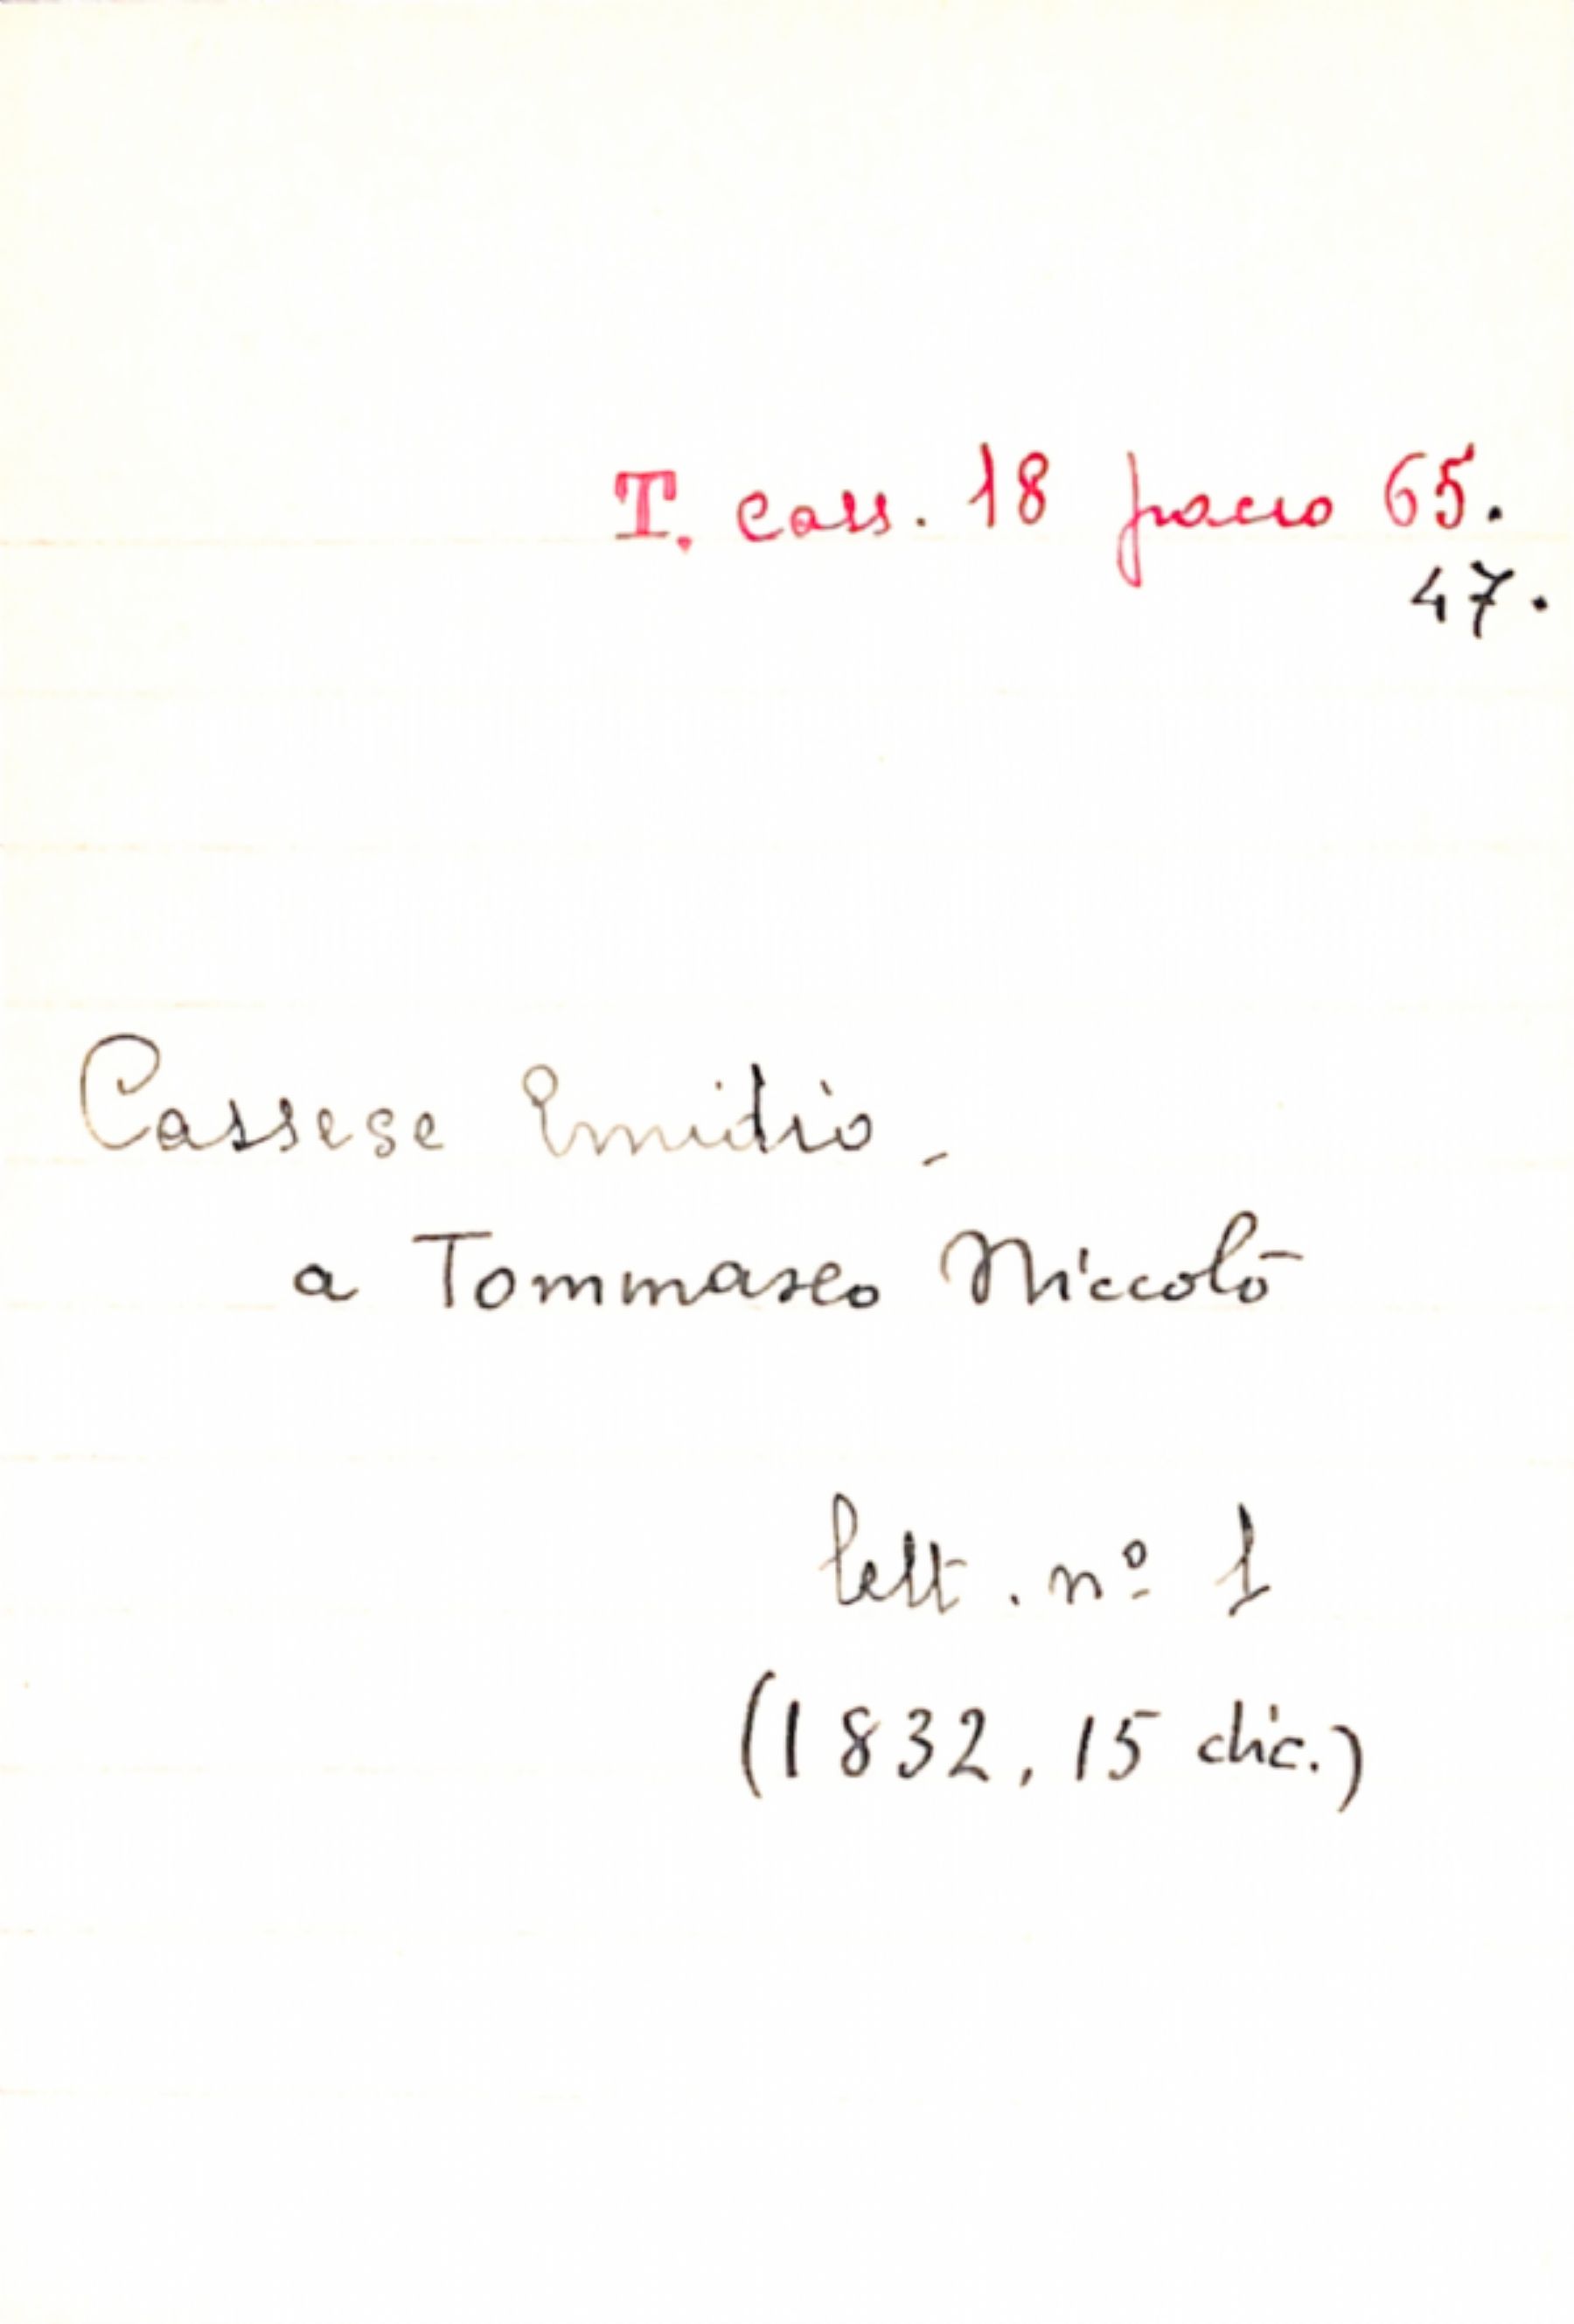 T. cass. 18 pacco 65.
47.
Cassese Emidio -
a Tommaseo Niccolò
lett. nº 1
(1832, 15 dic.)